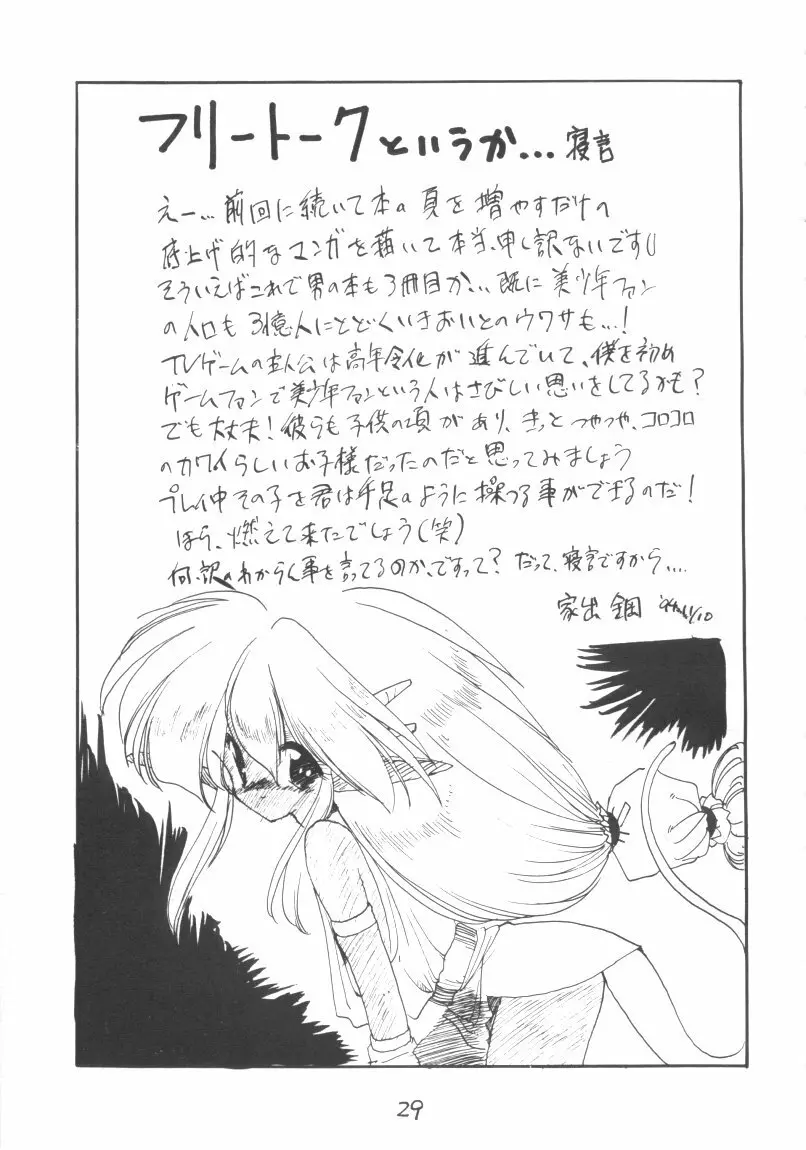 フリートークというか… 寝言
えー… 前回に続いて本の頁を増やすだけの
底上げ的なマンガを描いて本当、申し訳ないです
そういえばこれで男の本も3冊目か… 既に美少年ファン
の人口も3億人にとどくいきおいとのウワサも…!
TVゲームの主人公は高年令化が進んでいて、僕を初め
ゲームファンで美少年ファンという人はさびしい思いをしてるかも?
でも大丈夫!彼らも子供の頃があり、きっとつやつや、コロコロ
のカワイらしいお子様だったのだと思ってみましょう
プレイ中その子を君は手足のように操つる事ができるのだ!
ほら、燃えて来たでしょう(笑)
何、訳のわからん事を言ってるのか、ですって? だって、寝言ですから….
家出 鋼 '94.11/10
29